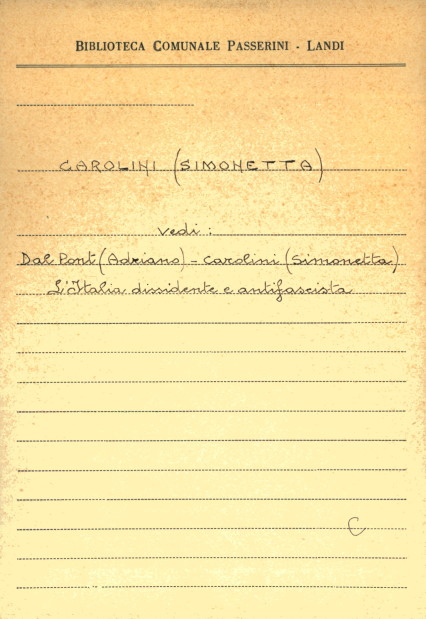 BIBLIOTECA COMUNALE PASSERINI - LANDI
CAROLINI (SIMONETTA)
vedi :
Dal Pont (Adriano) - Carolini (Simonetta)
L'Italia dissidente e antifascista
C